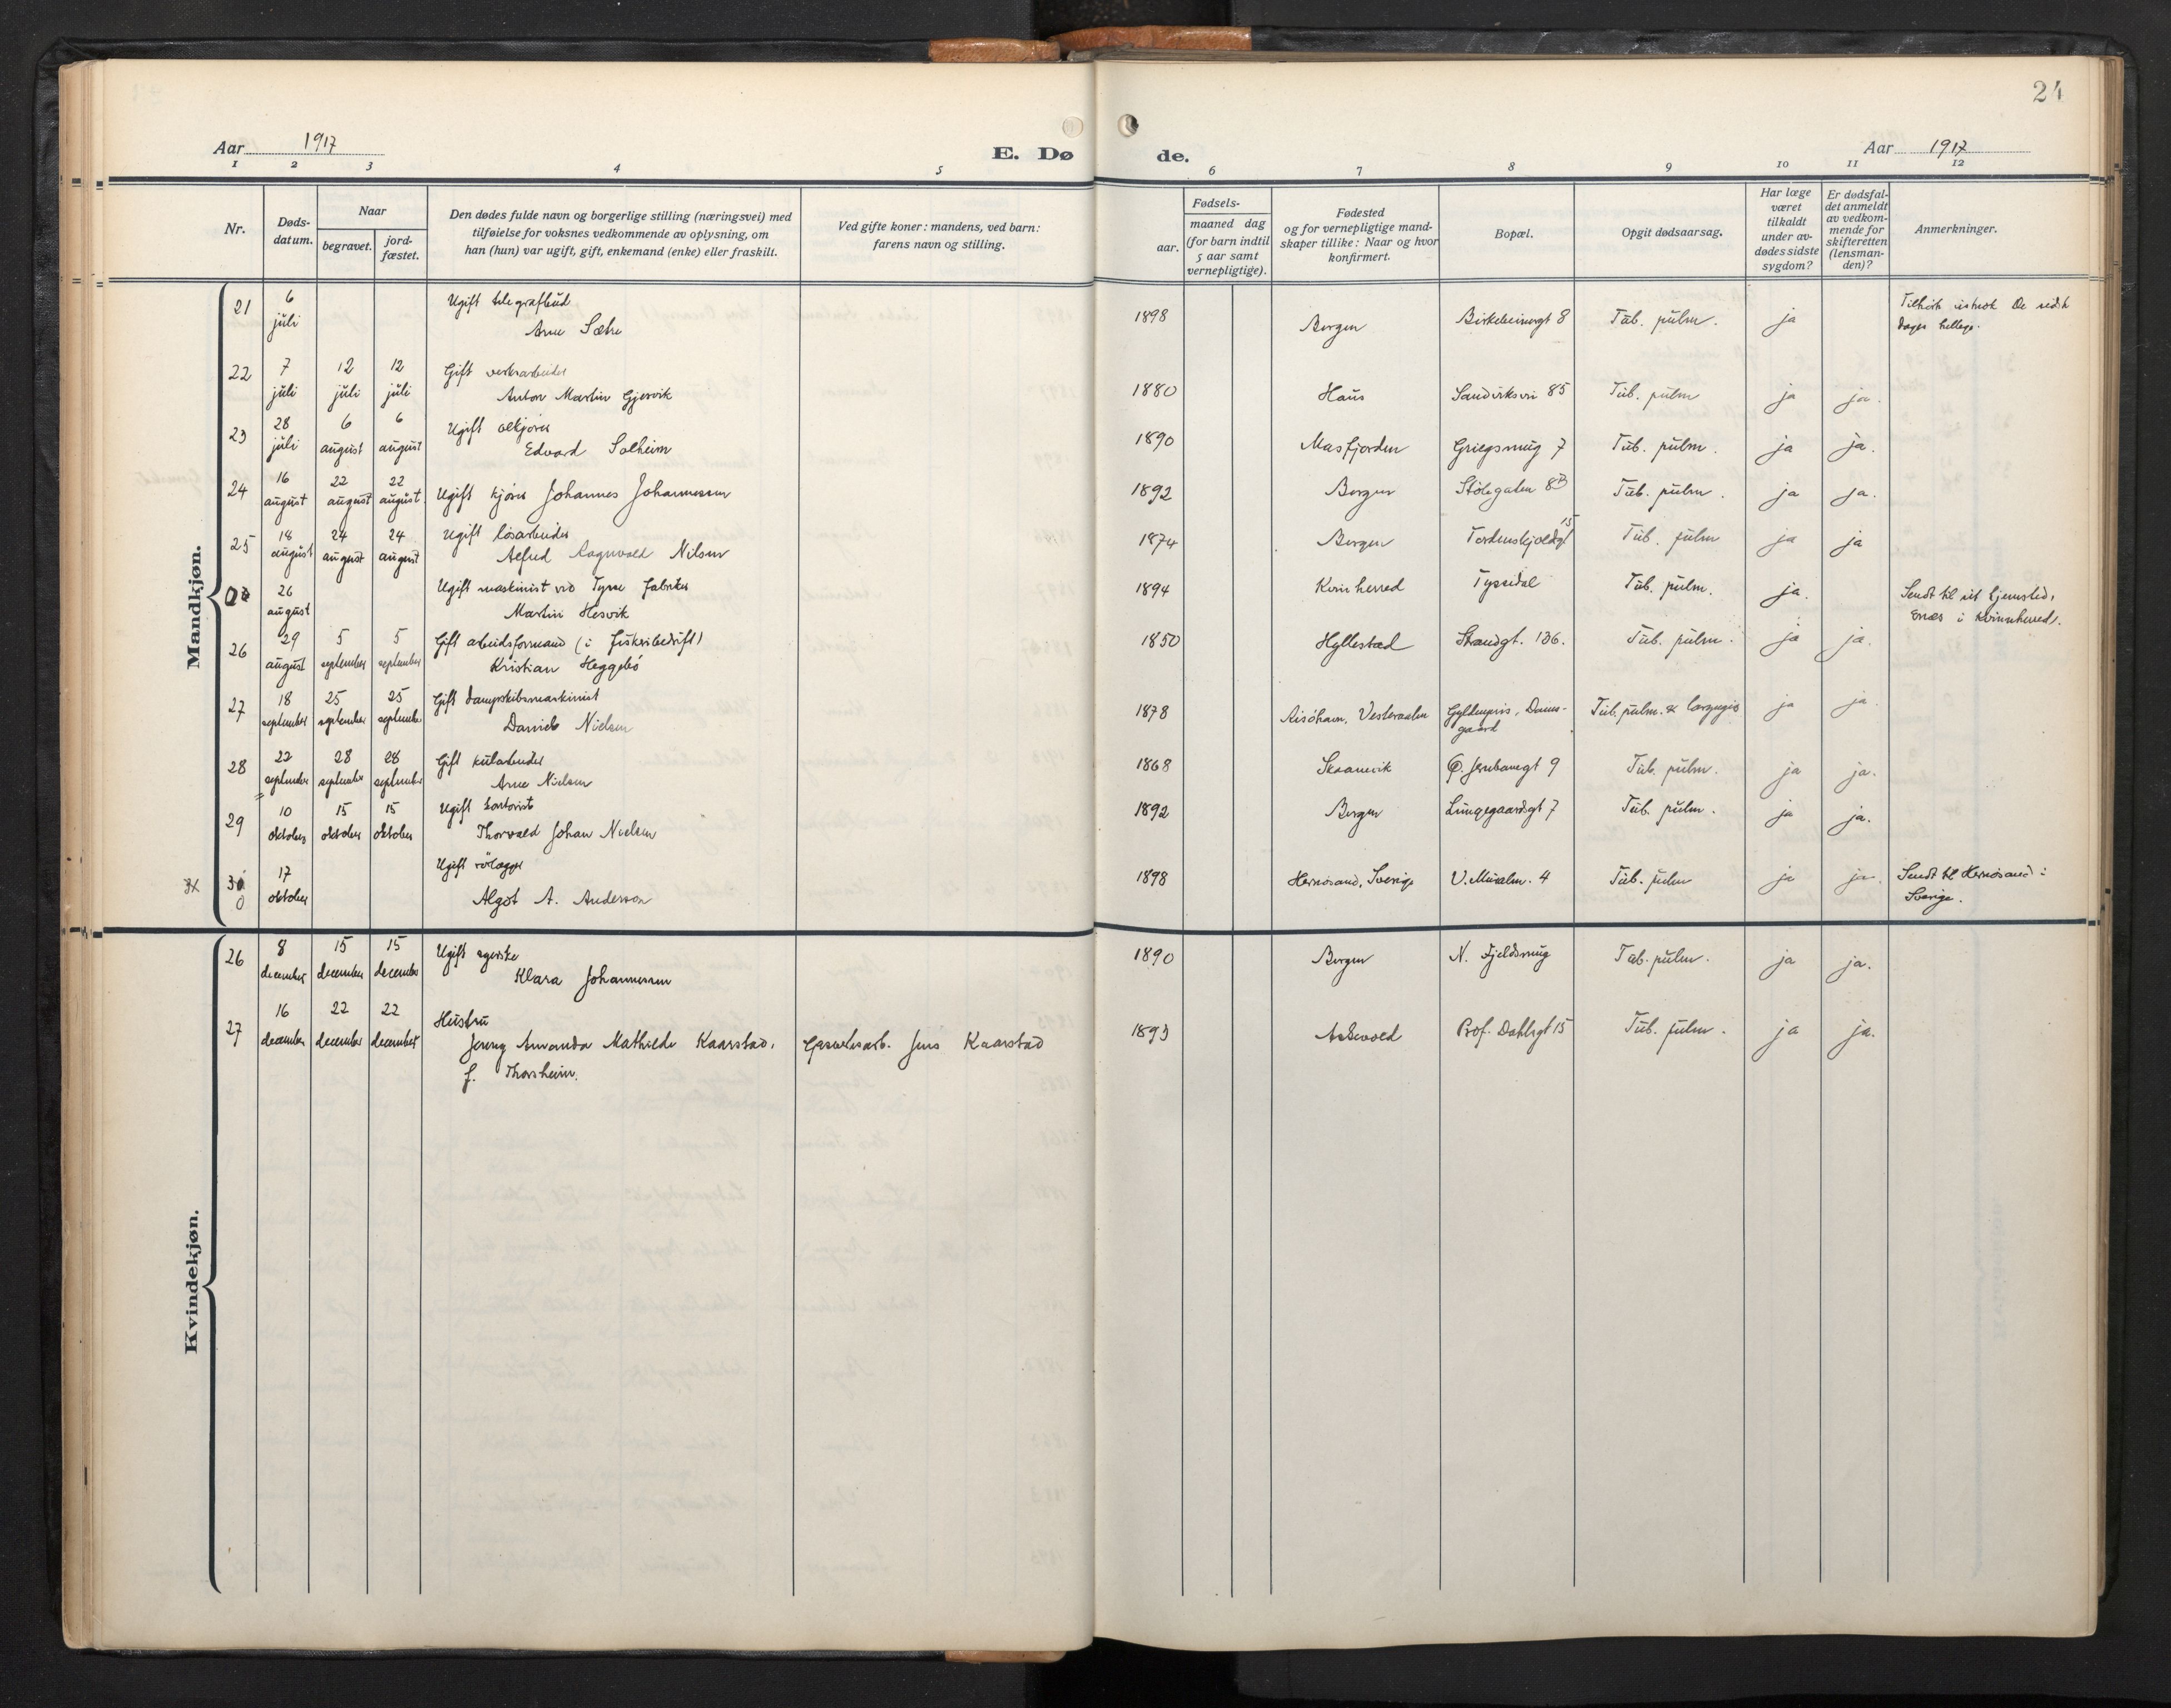 24
Aar 1917
E. Dø
de.
Aar 1917
1 2 3 4 5 6 7 8 9 10 11 12
Nr.
Døds-
datum.
Naar
begravet.
jord-
fæstet.
Den dødes fulde navn og borgerlige stilling (næringsvei) med
tilføielse for voksnes vedkommende av oplysning, om
han (hun) var ugift, gift, enkemand (enke) eller fraskilt.
Ved gifte koner: mandens, ved barn:
farens navn og stilling.
Fødsels-
aar.
maaned dag
(for barn indtil
5 aar samt
vernepligtige).
Fødested
og for vernepligtige mand-
skaper tillike: Naar og hvor
konfirmert.
Bopæl.
Opgit dødsaarsag.
Har læge
været
tilkaldt
under av-
dødes sidste
sygdom?
Er dødsfal-
det anmeldt
av vedkom-
mende for
skifteretten
(lensman-
den)?
Anmerkninger.
Mandkjøn.
21 6 Ugift telegrafbud 1898 Bergen Birkebeinergt 8 Tub. pulm. ja
juli Arne Sætre
dager hellige.
22 7 12 12 Gift verksarbeider
juli juli juli Anton Martin Gjervik 1880 Haus Sandviksvei 85 Tub. pulm ja ja.
23 28 6 6 Ugift ølkjører
juli august august Edvard Solheim 1890 Masfjorden Griegsmug 7 Tub. pulm. ja ja.
24 16 22 22 Ugift kjører Johannes Johannessen 1892 Bergen Stølegaten 8B Tub. pulm. ja ja.
august august august.
25 18 24 24 Ugift løsarbeider 15
august august august Alfred Ragnvald Nilsen 1874 Bergen Tordenskjoldgt Tub. pulm ja ja
26 Ugift maskinist ved Tysse fabriker 1894 Kvinherred Tyssedal Tub. pulm. ja. Sendt til sit hjemsted,
august Martin Hesvik Enæs i Kvinnherred.
26 29 5 5 Gift arbeidsformand (i fiskeribedrift) 1850 Hyllestad Strandgt. 136. Tub. pulm. ja ja.
august september september Kristian Heggebø
27 18 25 25 Gift dampskibsmaskinist
september september september Daniel Nielsen 1878 Risöhavn, Vesteraalen Gyldenpris, Dams-
gaard Tub. pulm. & laryngis ja ja.
28 22 28 28 Gift kularbeider 1868 Skaanevik Ø. Jernbanegt 9 Tub. pulm. ja ja.
september september september Arne Nielsen
29 10 15 15 Ugift kontorist 1892 Bergen Lungegaardsgt 7 Tub. pulm. ja ja.
oktober oktober oktober Thorvald Johan Nielsen
30 17 Ugift rörlægger 1898 Hernösand, Sverige V. Muralm. 4 Tub. pulm ja ja. Sendt til Hernösand i
oktober Algot A. Anderson Sverige.
Kvindekjøn.
26 8 15 15 Ugift syerske 1890 Bergen N. Fjeldsmug Tub. pulm. ja ja.
december december december Klara Johannessen
27 16 22 22 Hustru
december december december Jenny Amanda Mathilde Kaarstad, Gasverksarb. Jens Kaarstad 1893 Askevold Prof. Dahlsgt 15 Tub. pulm. ja ja.
f. Thorsheim.